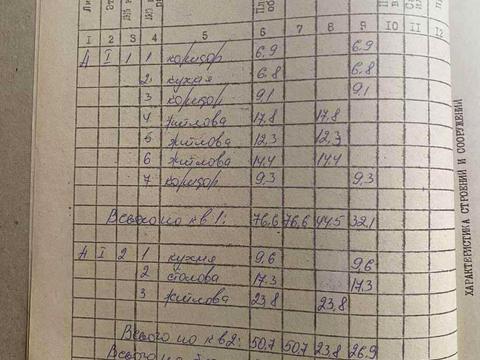 1 2 3 4 5 6 7 8 9 10 11 12
А I 1 1 коридор 6,9 6,9
2 кухня 6,8 6,8
3 коридор 9,1 9,1
4 житлова 17,8 17,8
5 житлова 12,3 12,3
6 житлова 14,4 14,4
7 коридор 9,3 9,3
Всього по кв 1: 76,6 76,6 44,5 32,1
А I 2 1 кухня 9,6 9,6
2 столова 17,3 17,3
3 житлова 23,8 23,8
Всього по кв 2: 50,7 50,7 23,8 26,9
ХАРАКТЕРИСТИКА СТРОЕНИЙ И СООРУЖЕНИЙ